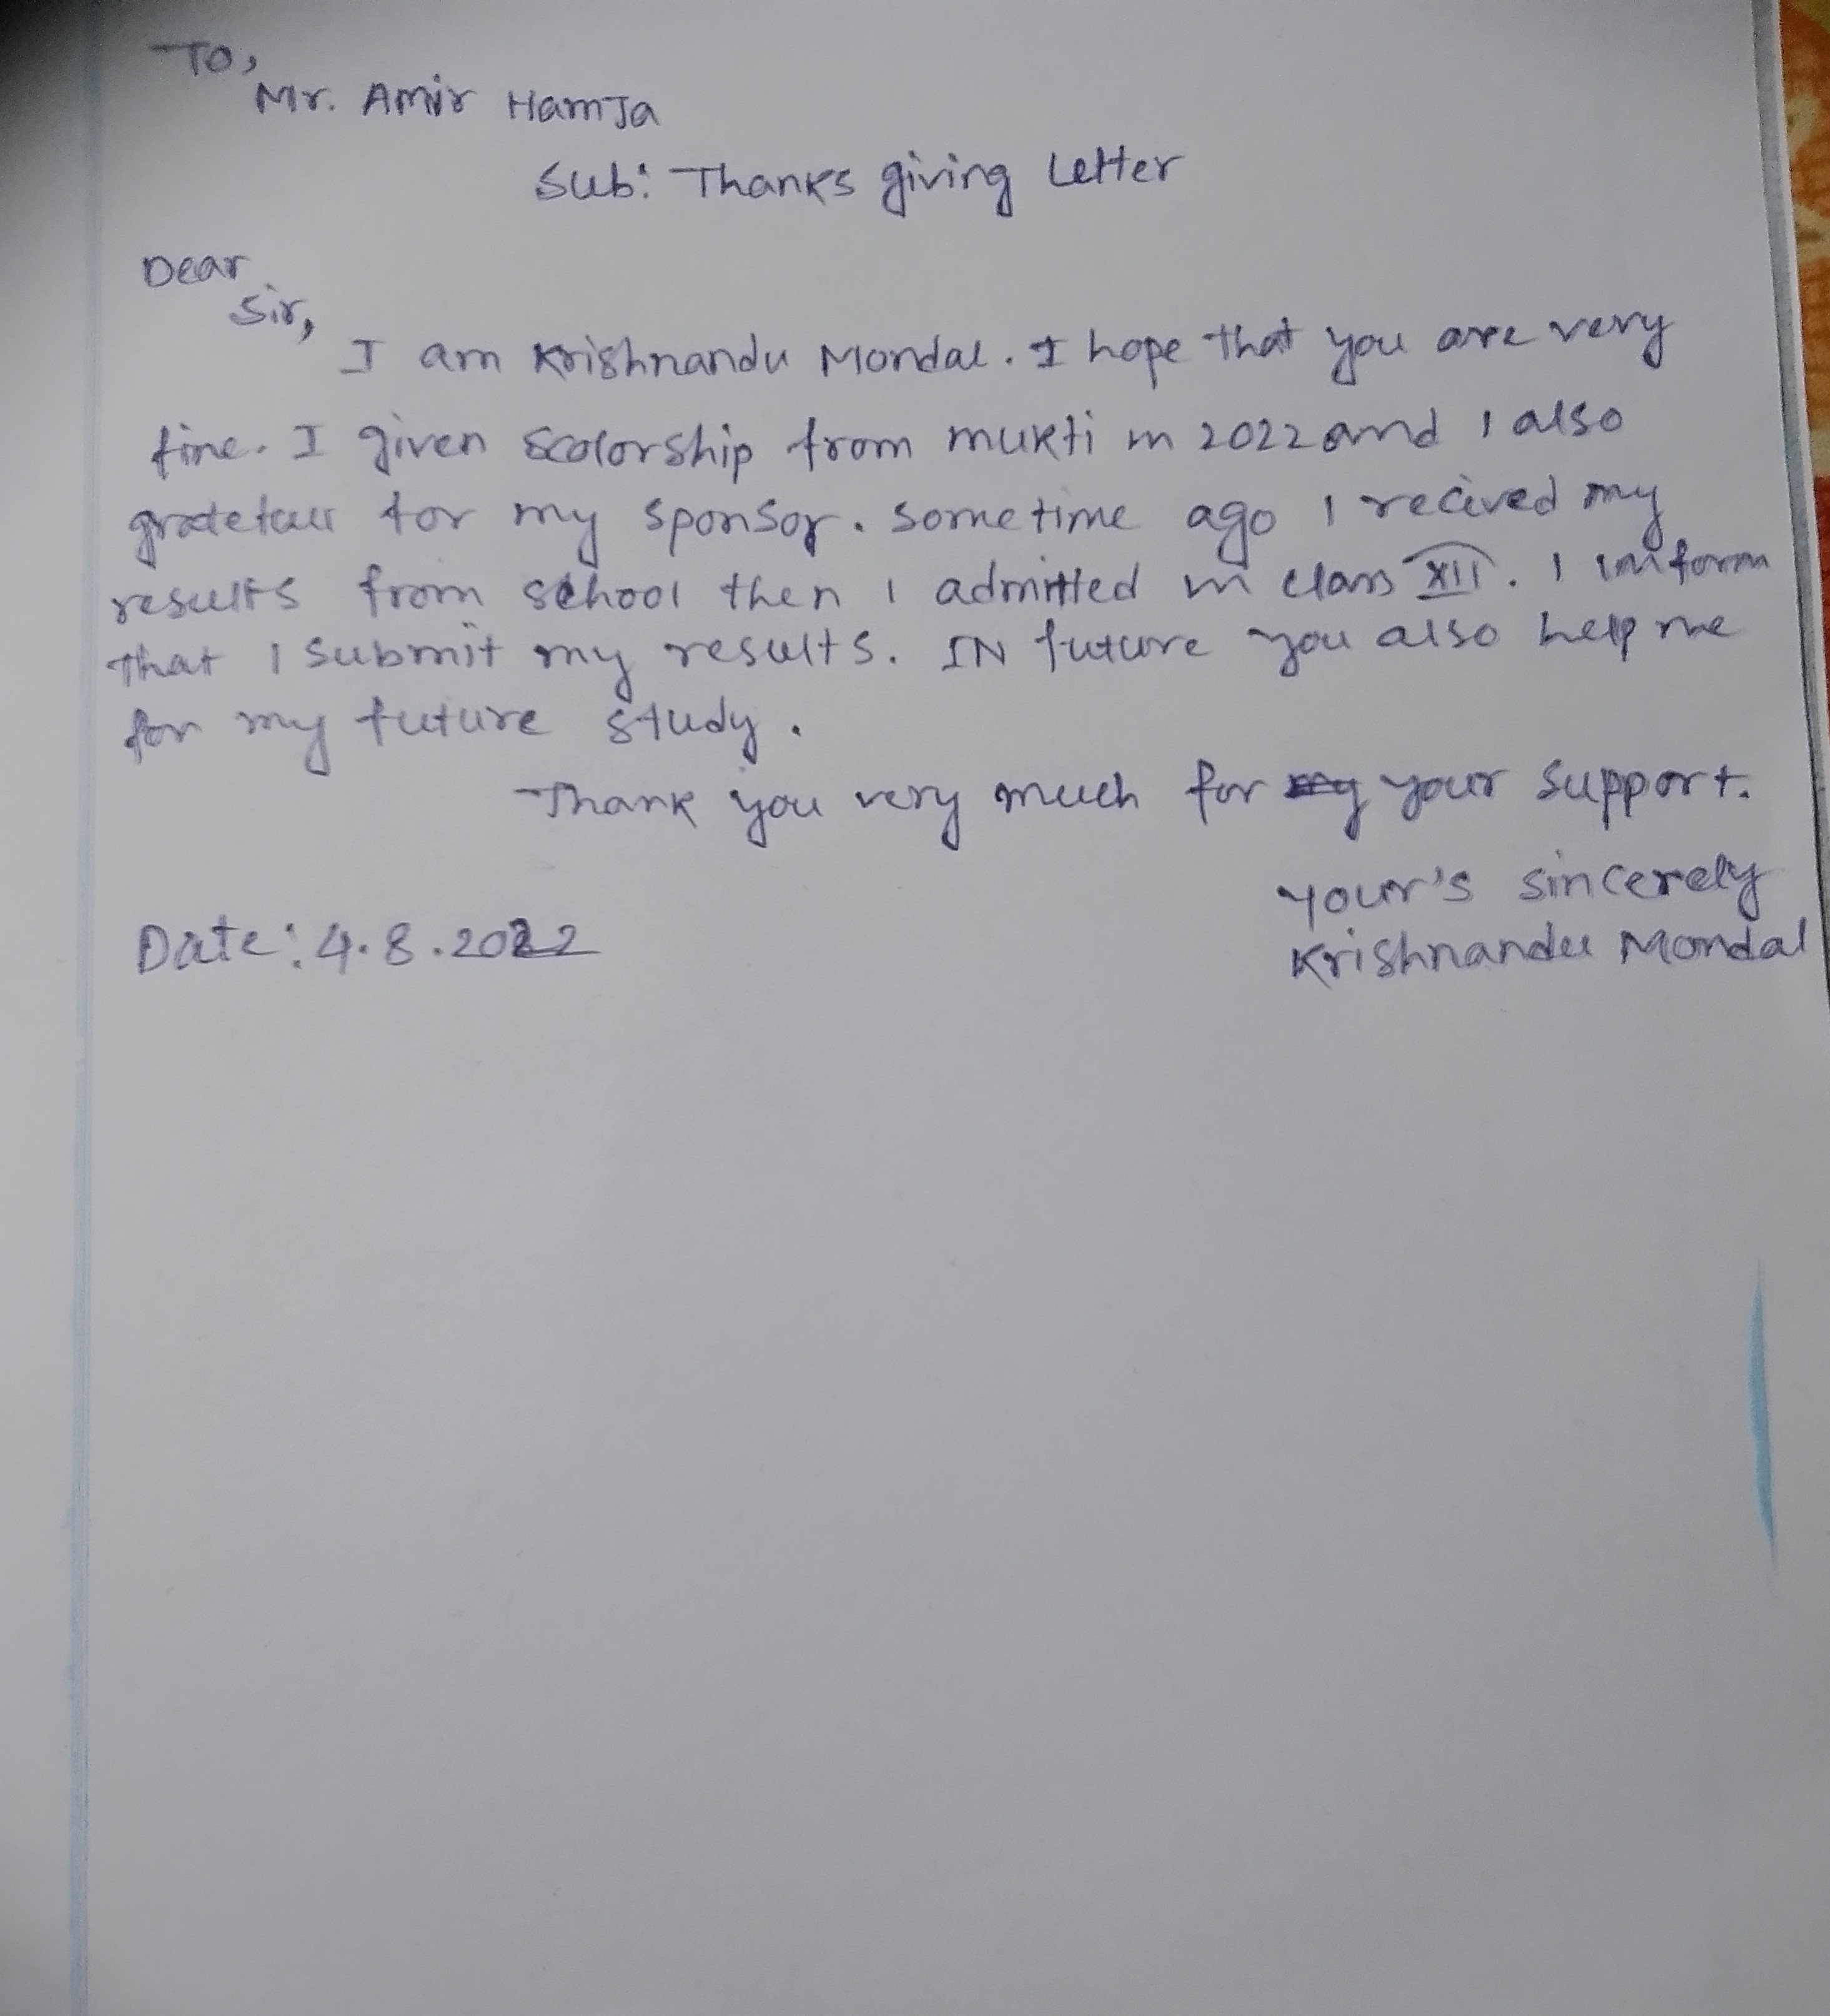 To,
Mr. Amir Hamja
Sub: Thanks giving Letter
Dear
Sir,
I am Krishnandu Mondal. I hope that you are very
fine. I given scolorship from mukti in 2022 and I also
gratefull for my sponsor. Sometime ago I recived my
results from school then I admitted in class XII. I inform
that I submit my results. IN future you also help me
for my future study.
Thank you very much for your support.
Your's sincerely
Date: 4.8.2022
Krishnandu Mondal